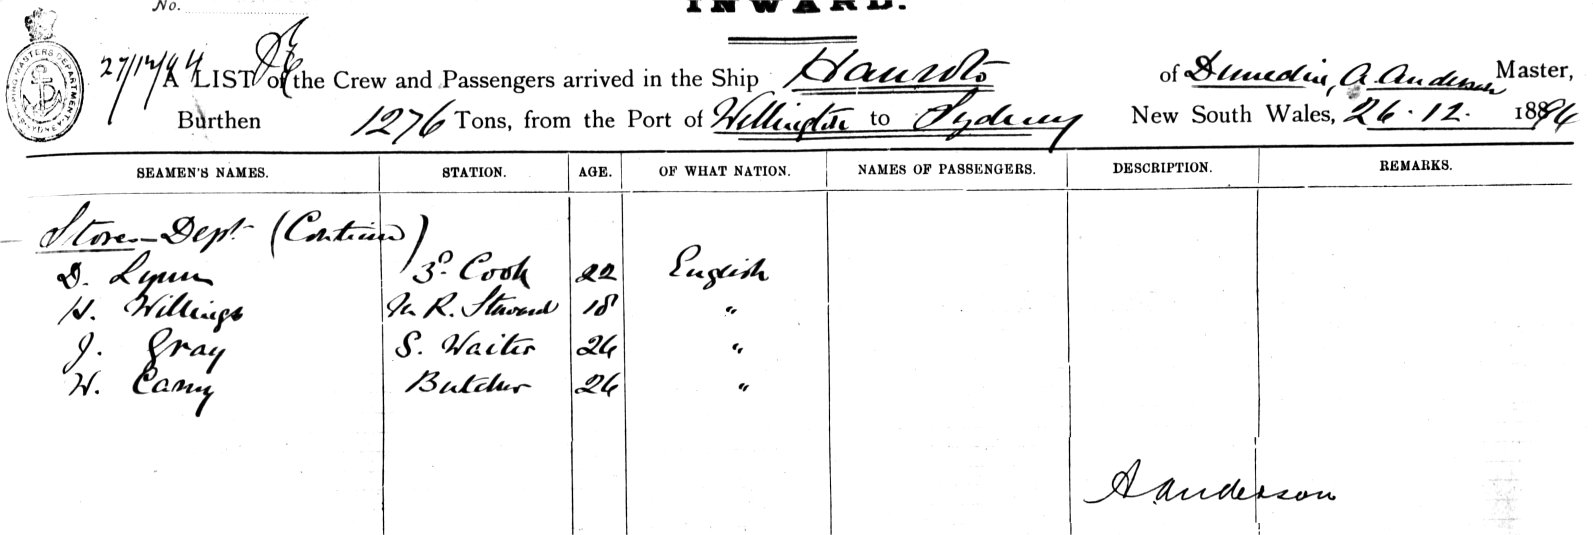 No.
INWARD.
27/12/94
A LIST of the Crew and Passengers arrived in the Ship Hauroto of Dunedin, A. Anderson Master,
Burthen 1276 Tons, from the Port of Wellington to Sydney New South Wales, 26.12. 1894
SEAMEN'S NAMES. STATION. AGE. OF WHAT NATION. NAMES OF PASSENGERS. DESCRIPTION. REMARKS.
Stores Dept (Continued)
D. Lynn 3rd Cook 22 English
H. Willings M. R. Steward 18 "
J. Gray S. Waiter 24 "
W. Carry Butcher 24 "
A Anderson